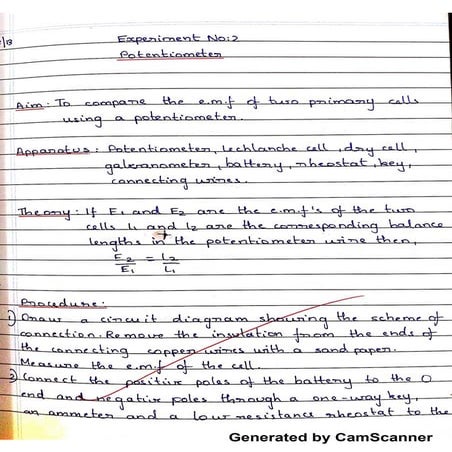 /18
Experiment No:2
Potentiometer
Aim: To compare the e.m.f of two primary cells
using a potentiometer.
Apparatus: Potentiometer, Lechlanche cell, dry cell,
galvanometer, battery, rheostat, key,
connecting wires.
Theory: If E1 and E2 are the e.m.f's of the two
cells l1 and l2 are the corresponding balance
lengths in the potentiometer wire then,
E2/E1 = L2/L1
Procedure:
1) Draw a circuit diagram showing the scheme of
connection. Remove the insulation from the ends of
the connecting copper wires with a sand paper.
Measure the e.m.f of the cell.
2) Connect the positive poles of the battery to the 0
end and negative poles through a one-way key,
an ammeter and a low resistance rheostat to the
Generated by CamScanner